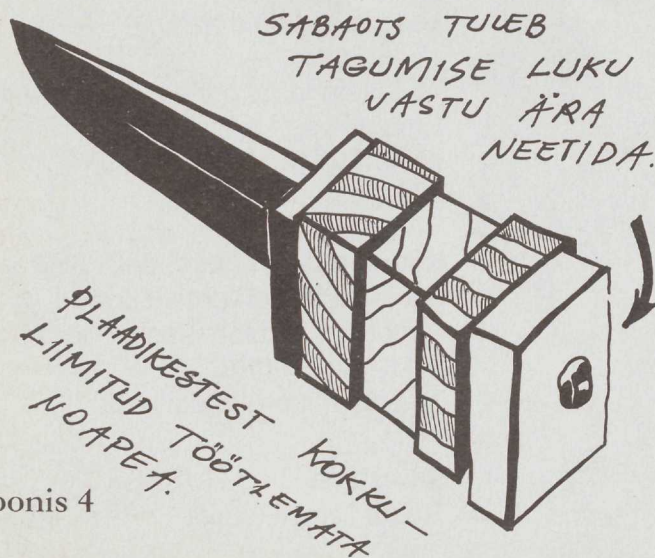 SABAOTS TULEB
TAGUMISE LUKU
VASTU ÄRA
NEETIDA.
PLAADIKESTEST KOKKU-
LIIMITUD TÖÖTLEMATA
NOAPEA.
oonis 4